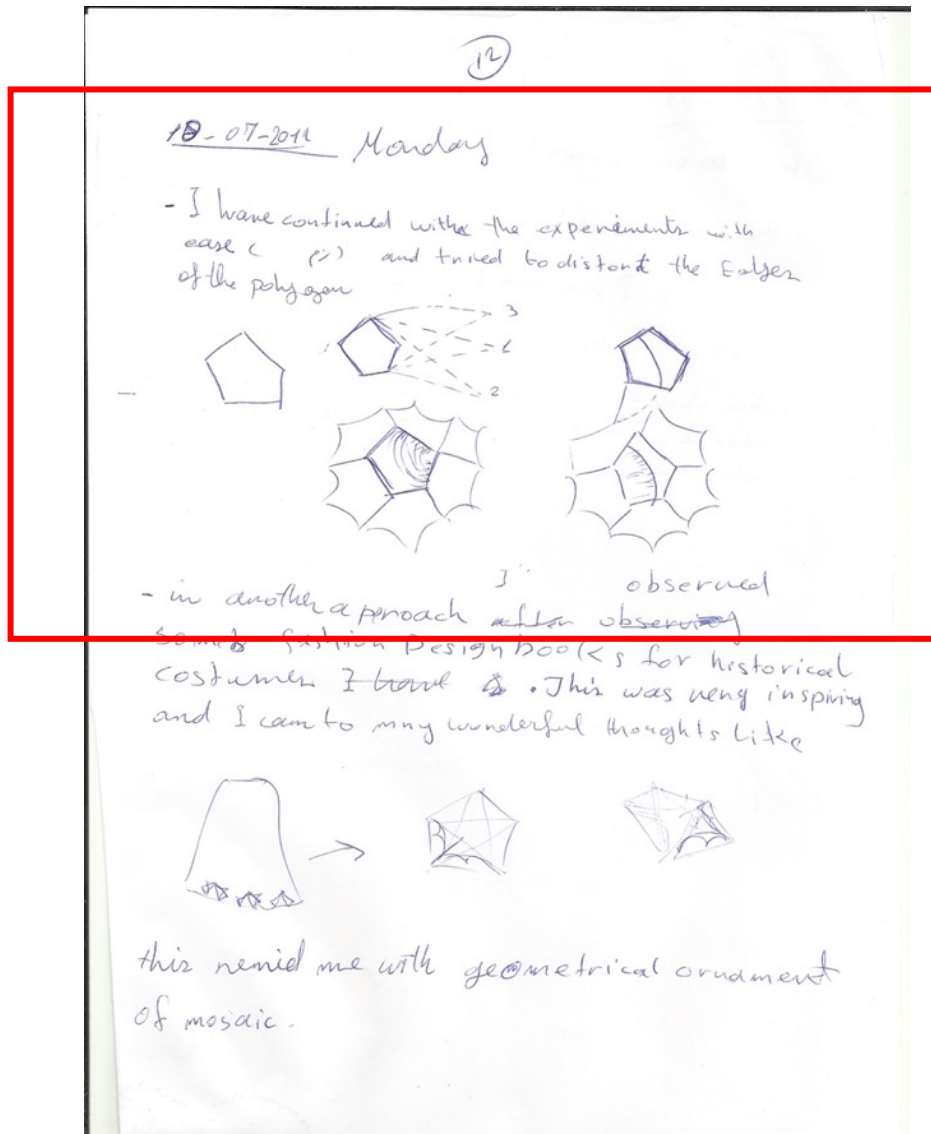 12
18-07-2011 Monday
- I have continued withe the experiments with
ease ( ) and tried to distort the Edges
of the polygon
3
1
2
I observed
- in another approach after observing
some fashion Design books for historical
costumes I have . This was very inspiring
and I cam to mny wonderful thoughts like
this remid me with geometrical ornament
of mosaic.